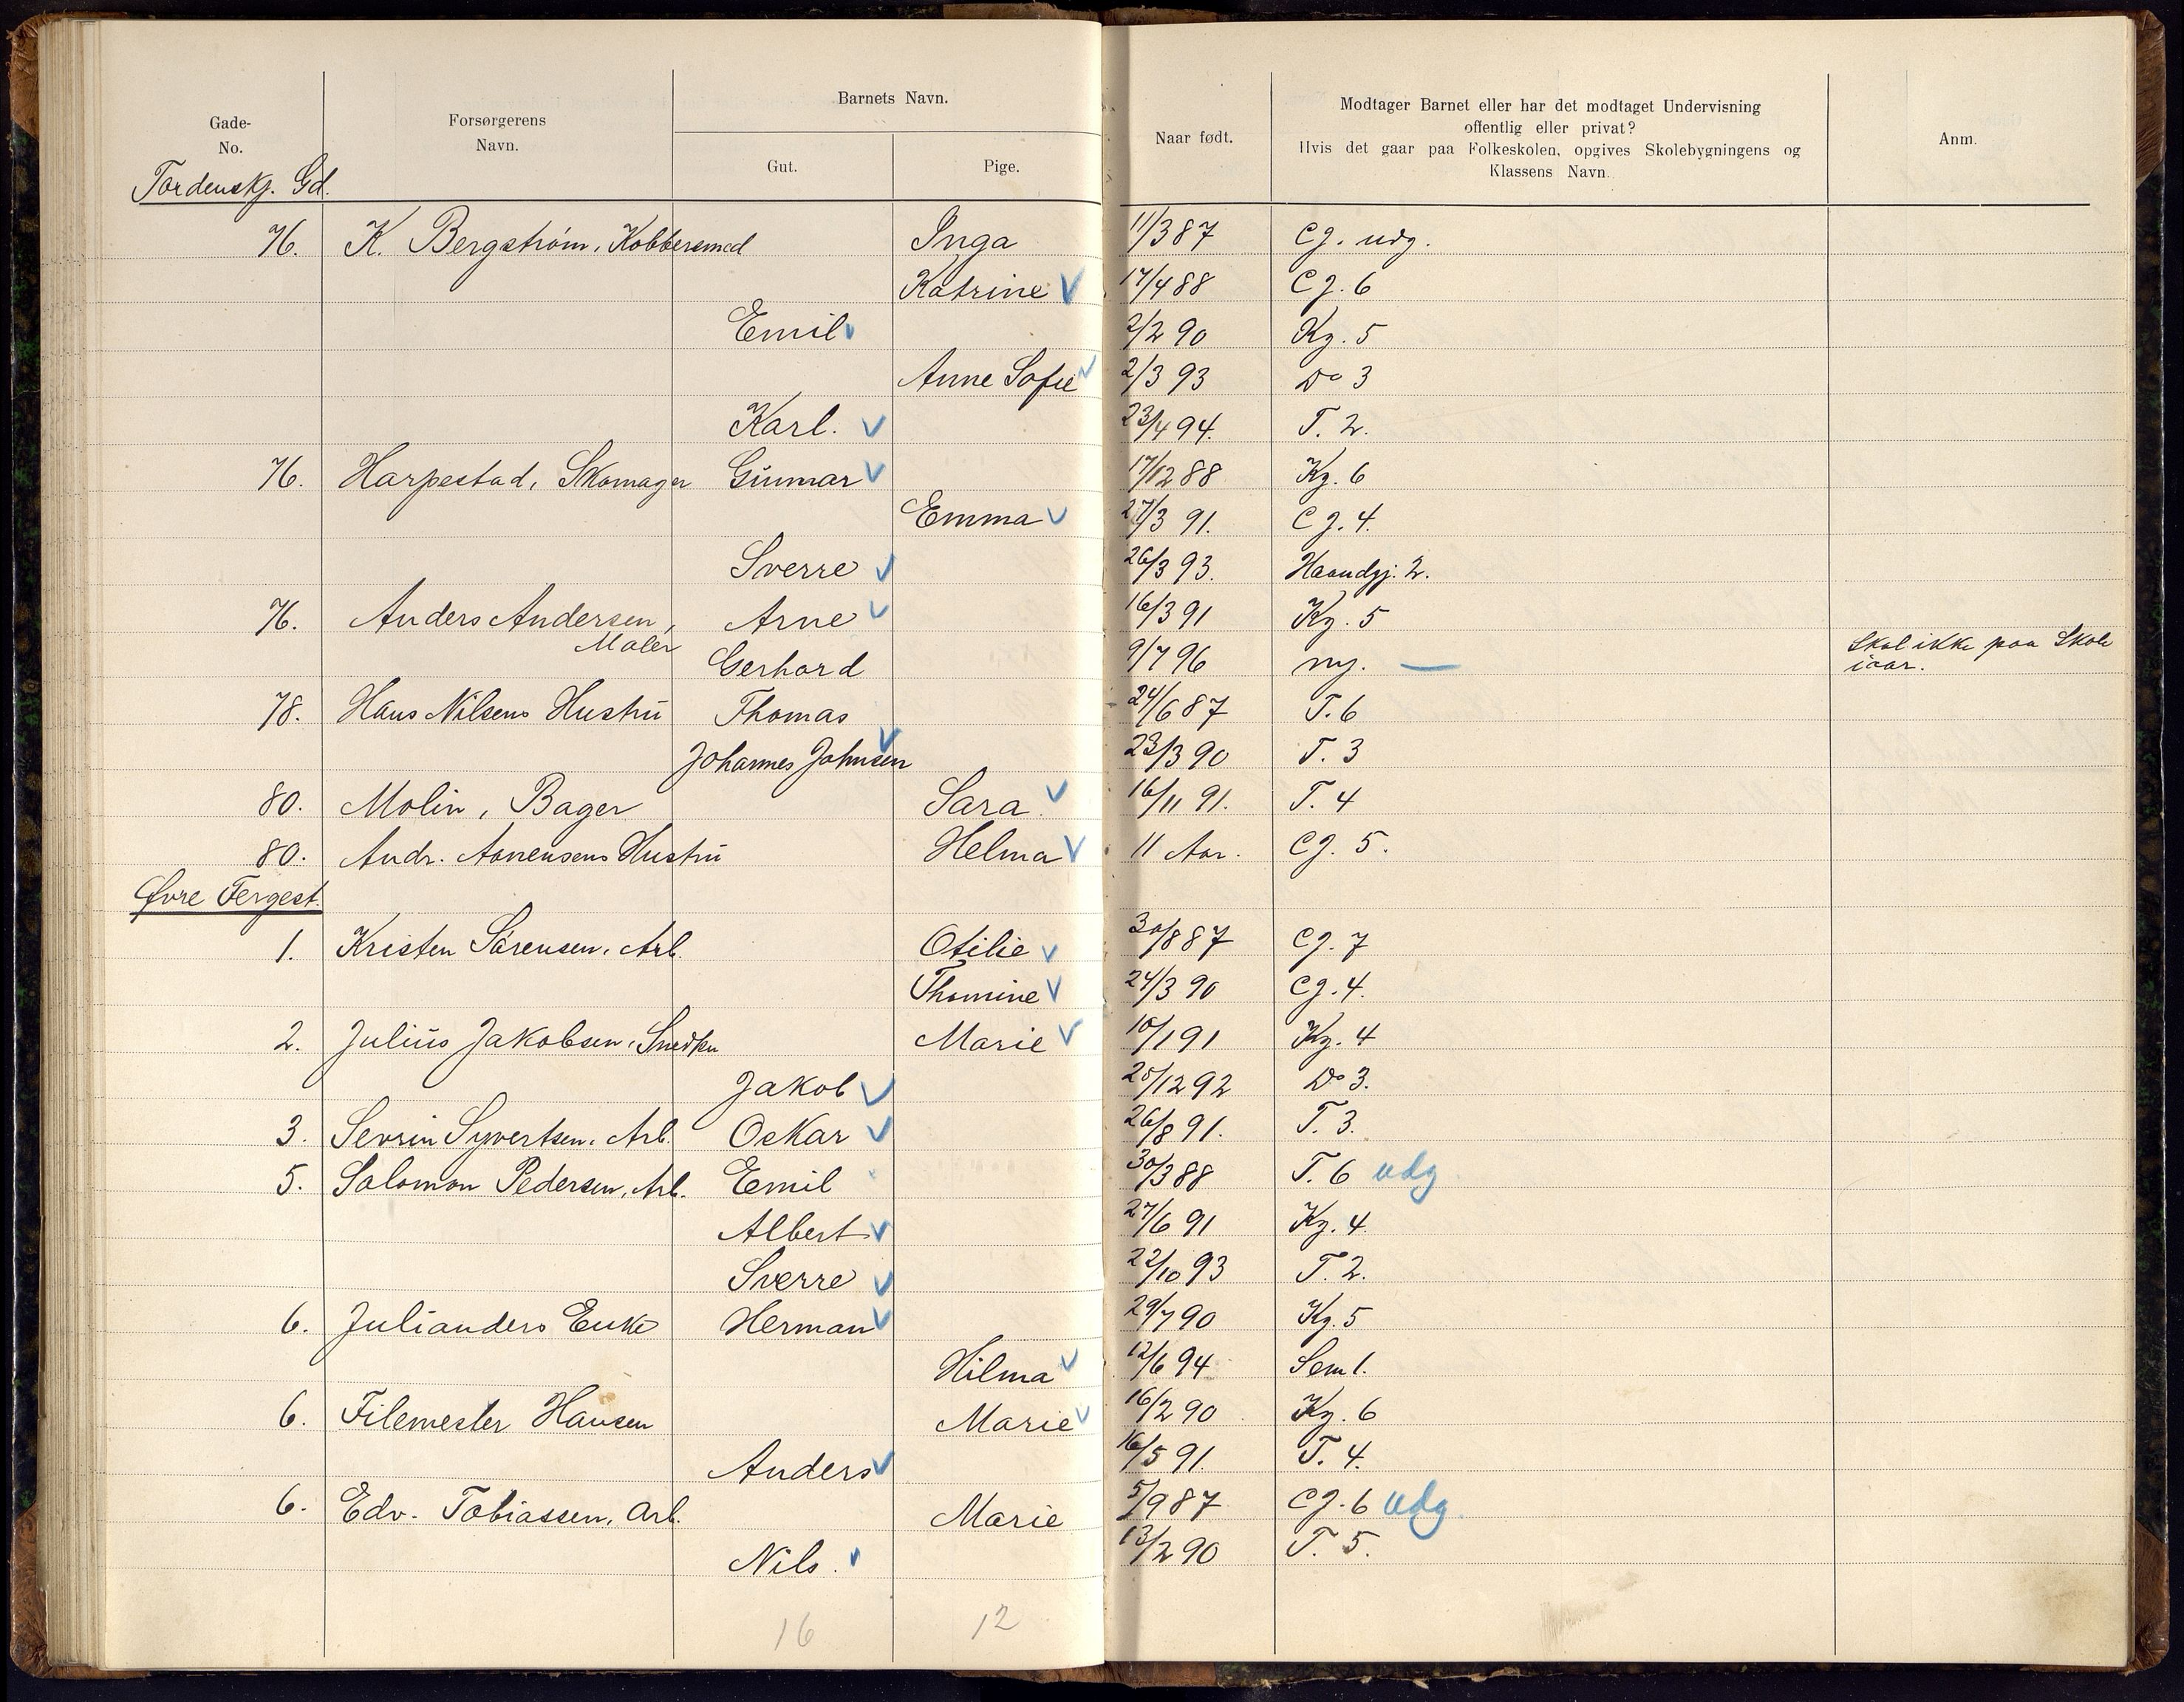 Gade-
No.
Forsørgerens
Navn.
Barnets Navn.
Gut.
Pige.
Naar født.
Modtager Barnet eller har det modtaget Undervisning
offentlig eller privat?
Hvis det gaar paa Folkeskolen, opgives Skolebygningens og
Klassens Navn.
Anm.
Tordenskj. Gd.
76. K. Bergstrøm, Kobbersmed Inga 11/3 87 Cg. udg.
Katrine V 17/4 88 Cg. 6
Emil V 2/2 90 Kg. 5
Anne Sofie V 2/3 93 Do 3
Karl. V 23/4 94. T. 2.
76. Harpestad, Skomager Gunnar V 17/12 88 Kg. 6
Emma V 27/3 91. Cg. 4.
Sverre V 26/3 93. Haandgj. 2.
76. Anders Andersen, Arne V 16/3 91 Kg. 5
Maler Gerhard 9/7 96 ny. — Skal ikke paa Skole
iaar.
78. Hans Nilsens Hustru Thomas 24/6 87 T. 6
Johannes Johnsen V 23/3 90 T. 3
80. Molin, Bager Sara V 16/11 91. T. 4
80. Andr. Hustru Helma V 11 Aar. Cg. 5.
Øvre Fergest.
1. Kristen Sørensen, Arb. Otilie V 30/8 87 Cg. 7
Thomine V 24/3 90 Cg. 4.
2. Julius Jakobsen, Snedker Marie V 10/1 91 Kg. 4
Jakob V 25/12 92 Do 3.
3. Sevrin Syvertsen, Arb. Oskar V 26/8 91. T. 3.
5. Salomon Pedersen, Arb. Emil 30/3 88 T. 6 udg
Albert V 27/6 91 Kg. 4.
Sverre V 22/10 93 T. 2.
6. Julianders Enke Herman V 29/7 90 Kg. 5
Hilma V 12/6 94 Sem 1.
6. Filemester Hansen Marie V 16/2 90 Kg. 6
Anders V 16/5 91. T. 4.
6. Edv. Tobiassen, Arb. Marie 5/9 87 Cg. 6 udg.
Nils. V 13/2 90 T. 5.
16 12